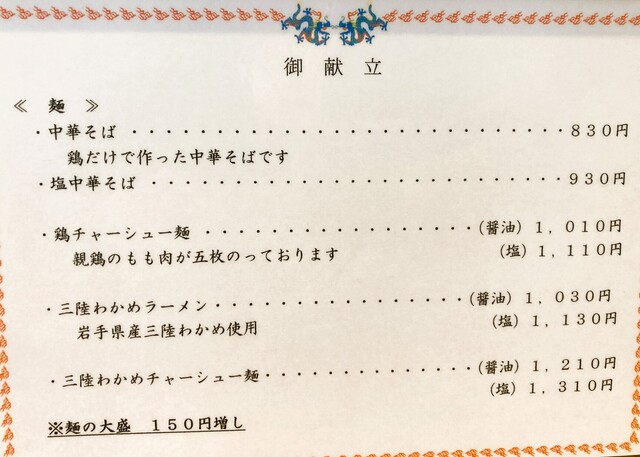 御献立
≪ 麺 ≫
・中華そば ・・・・・・・・・・・・・・・・・・・・・・・・・・・・・・830円
鶏だけで作った中華そばです
・塩中華そば ・・・・・・・・・・・・・・・・・・・・・・・・・・・・・930円
・鶏チャーシュー麺 ・・・・・・・・・・・・・・・・・・・(醤油) 1,010円
親鶏のもも肉が五枚のっております (塩) 1,110円
・三陸わかめラーメン・・・・・・・・・・・・・・・・・・(醤油) 1,030円
岩手県産三陸わかめ使用 (塩) 1,130円
・三陸わかめチャーシュー麺・・・・・・・・・・・・・・・(醤油) 1,210円
(塩) 1,310円
※麺の大盛 150円増し